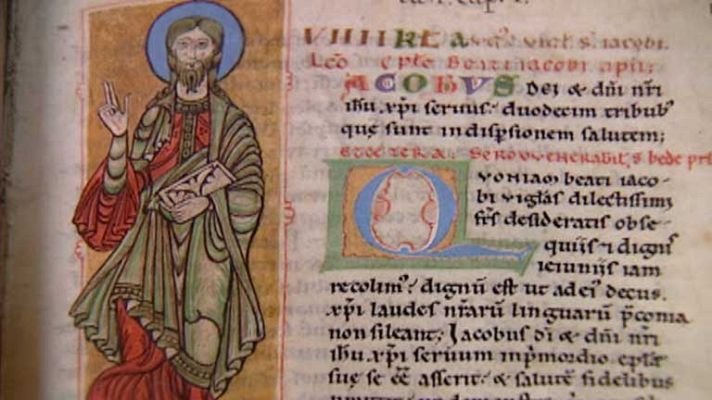 VIIII KLA AVG. VIGL S. IACOBI.
Lec̄ eplę Beati iacobi apłi:
IACOBVS Dei & dn̄i nr̄i
ihu. xp̄i seruus; duodecim tribub'
quę sunt in dispsionem salutem;
uenerabilis bede
QVONIAM beati iaco-
bi uigilias dilectissimi
frs desideratis obse-
quiis & dignis
ieiuniis iam
recolim'; dignū est ut ad ei' decus.
xp̄i laudes nr̄arū linguarū p̄conia
non sileant; Iacobus dī & dn̄i nr̄i
ihu. xp̄i seruum in p̄mordio eplę
suę se ēē asserit; & salutē fidelibus